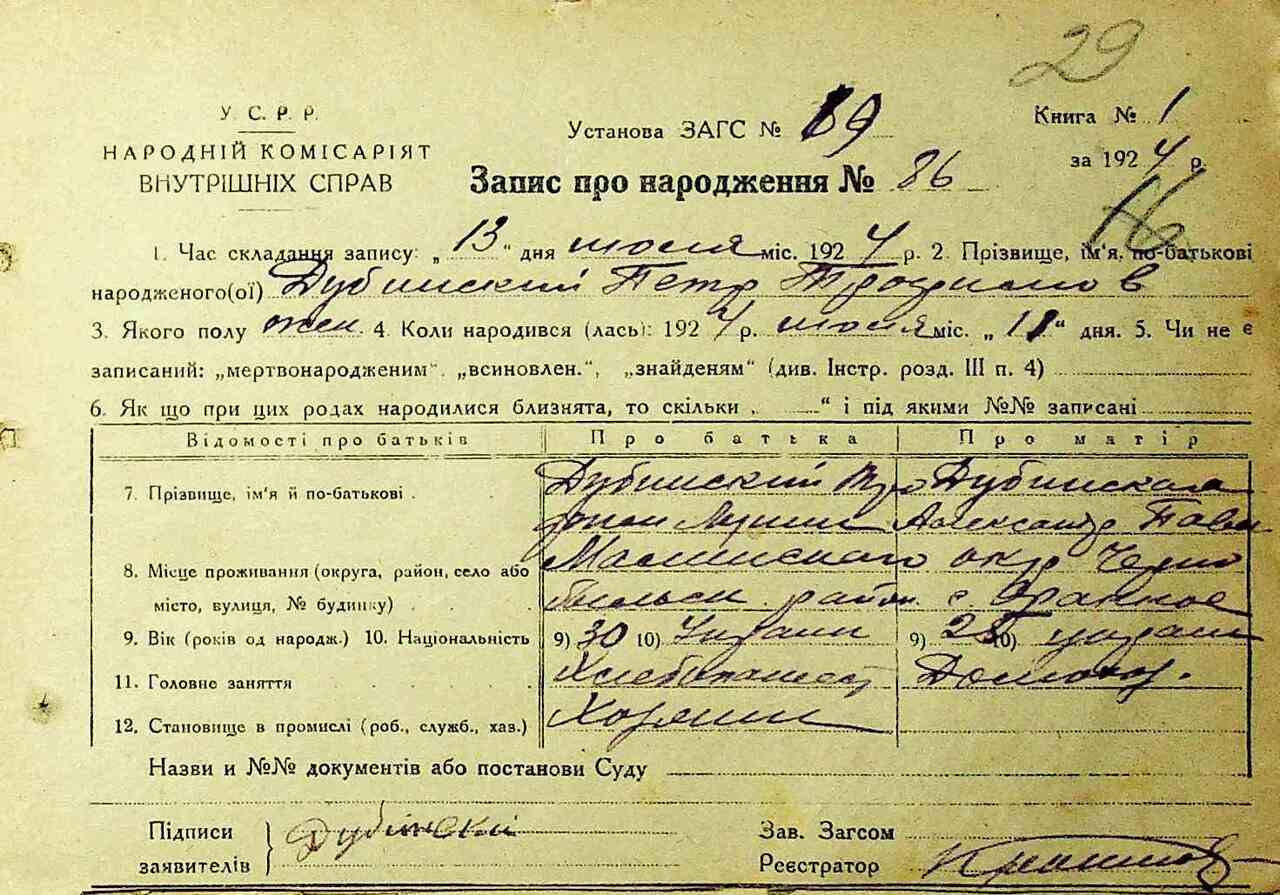 29
У. С. Р. Р.
НАРОДНІЙ КОМІСАРІЯТ
ВНУТРІШНІХ СПРАВ
Установа ЗАГС № 89
Книга № 1
за 1924 р.
Запис про народження № 86
1. Час складання запису: „13“ дня июля міс. 1924 р. 2. Прізвище, ім'я, по-батькові
народженого(ої) Дубинский Петр Трофимов
3. Якого полу 4. Коли народився (лась): 1924 р. июля міс. „11“ дня. 5. Чи не є
записаний: „мертвонародженим“, „всиновлен.“, „знайденям“ (див. Інстр. розд. III п. 4)
6. Як що при цих родах народилися близнята, то скільки „ “ і під якими №№ записані
Відомості про батьків Про батька Про матір
7. Прізвище, ім'я й по-батькові Дубинский Тро Дубинская
Александр Павл
8. Місце проживання (округа, район, село або Малинского окр Черно
місто, вулиця, № будинку) быльск. район с
9. Вік (років од народж.) 10. Національність 9) 30 10) Украин 9) 10) украин
11. Головне заняття Хлебопашец Домохоз.
12. Становище в промислі (роб., служб., хаз.) Хозяин
Назви и №№ документів або постанови Суду
Підписи Дубінский
заявителів
Зав. Загсом
Реєстратор